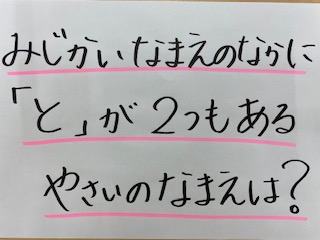 みじかいなまえのなかに
「と」が2つもある
やさいのなまえは?